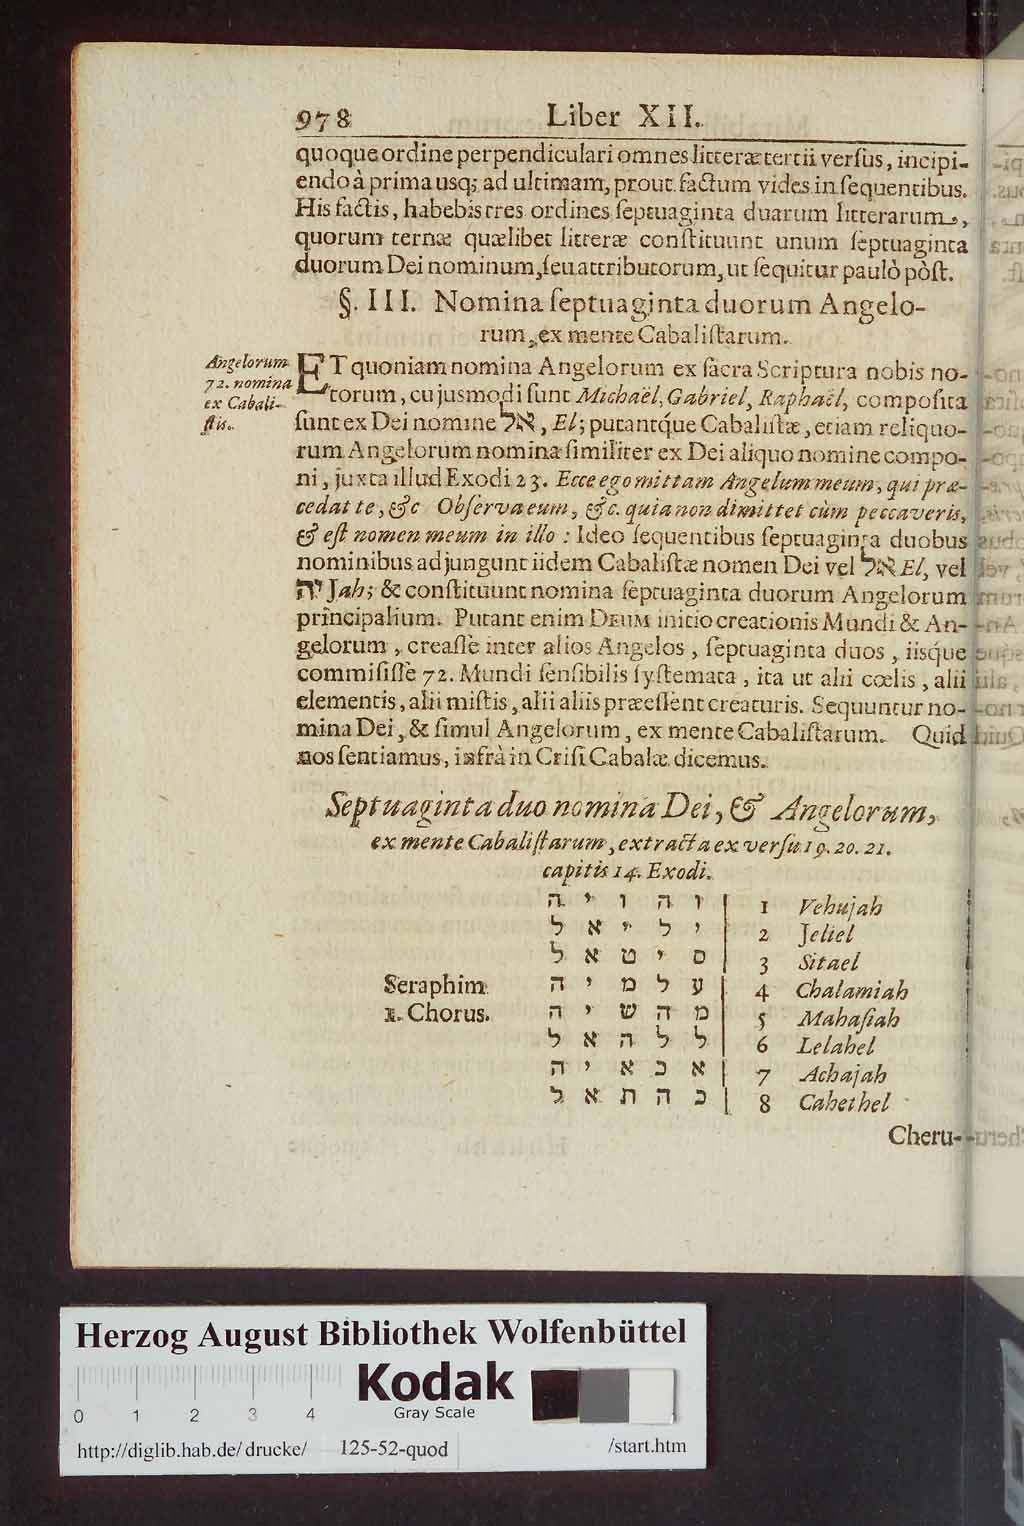 978 Liber XII.
quoque ordine perpendiculari omnes litteræ tertii versus, incipi-
endo à prima usq; ad ultimam, prout factum vides in sequentibus.
His factis, habebis tres ordines septuaginta duarum litterarum,
quorum ternæ quælibet litteræ constituunt unum septuaginta
duorum Dei nominum, seu attributorum, ut sequitur paulò pòst.
§. III. Nomina septuaginta duorum Angelo-
rum, ex mente Cabalistarum.
Angelorum
72. nomina
ex Cabali-
stis.
ET quoniam nomina Angelorum ex sacra Scriptura nobis no-
torum, cujusmodi sunt Michaël, Gabriel, Raphaël, composita
sunt ex Dei nomine אל, El; putantq́ue Cabalistæ, etiam reliquo-
rum Angelorum nomina similiter ex Dei aliquo nomine compo-
ni, juxta illud Exodi 23. Ecce ego mittam Angelum meum, qui præ-
cedat te, &c Observa eum, &c. quia non dimittet cùm peccaveris,
& est nomen meum in illo : Ideo sequentibus septuaginta duobus
nominibus adjungunt iidem Cabalistæ nomen Dei vel אל El, vel
יה Jah; & constituunt nomina septuaginta duorum Angelorum
principalium. Putant enim DEUM initio creationis Mundi & An-
gelorum, creasse inter alios Angelos, septuaginta duos, iisq́ue
commisisse 72. Mundi sensibilis systemata, ita ut alii cœlis, alii
elementis, alii mistis, alii aliis præessent creaturis. Sequuntur no-
mina Dei, & simul Angelorum, ex mente Cabalistarum. Quid
nos sentiamus, infrà in Crisi Cabalæ dicemus.
Septuaginta duo nomina Dei, & Angelorum,
ex mente Cabalistarum, extracta ex versu 19. 20. 21.
capitis 14. Exodi.
ו ה ו י ה 1 Vehujah
י ל י א ל 2 Jeliel
ס י ט א ל 3 Sitael
Seraphim ע ל מ י ה 4 Chalamiah
1. Chorus. מ ה ש י ה 5 Mahasiah
ל ל ה א ל 6 Lelahel
א כ א י ה 7 Achajah
כ ה ת א ל 8 Cahethel
Cheru-
Herzog August Bibliothek Wolfenbüttel
Kodak
Gray Scale
0 1 2 3 4
http://diglib.hab.de/drucke/ 125-52-quod /start.htm